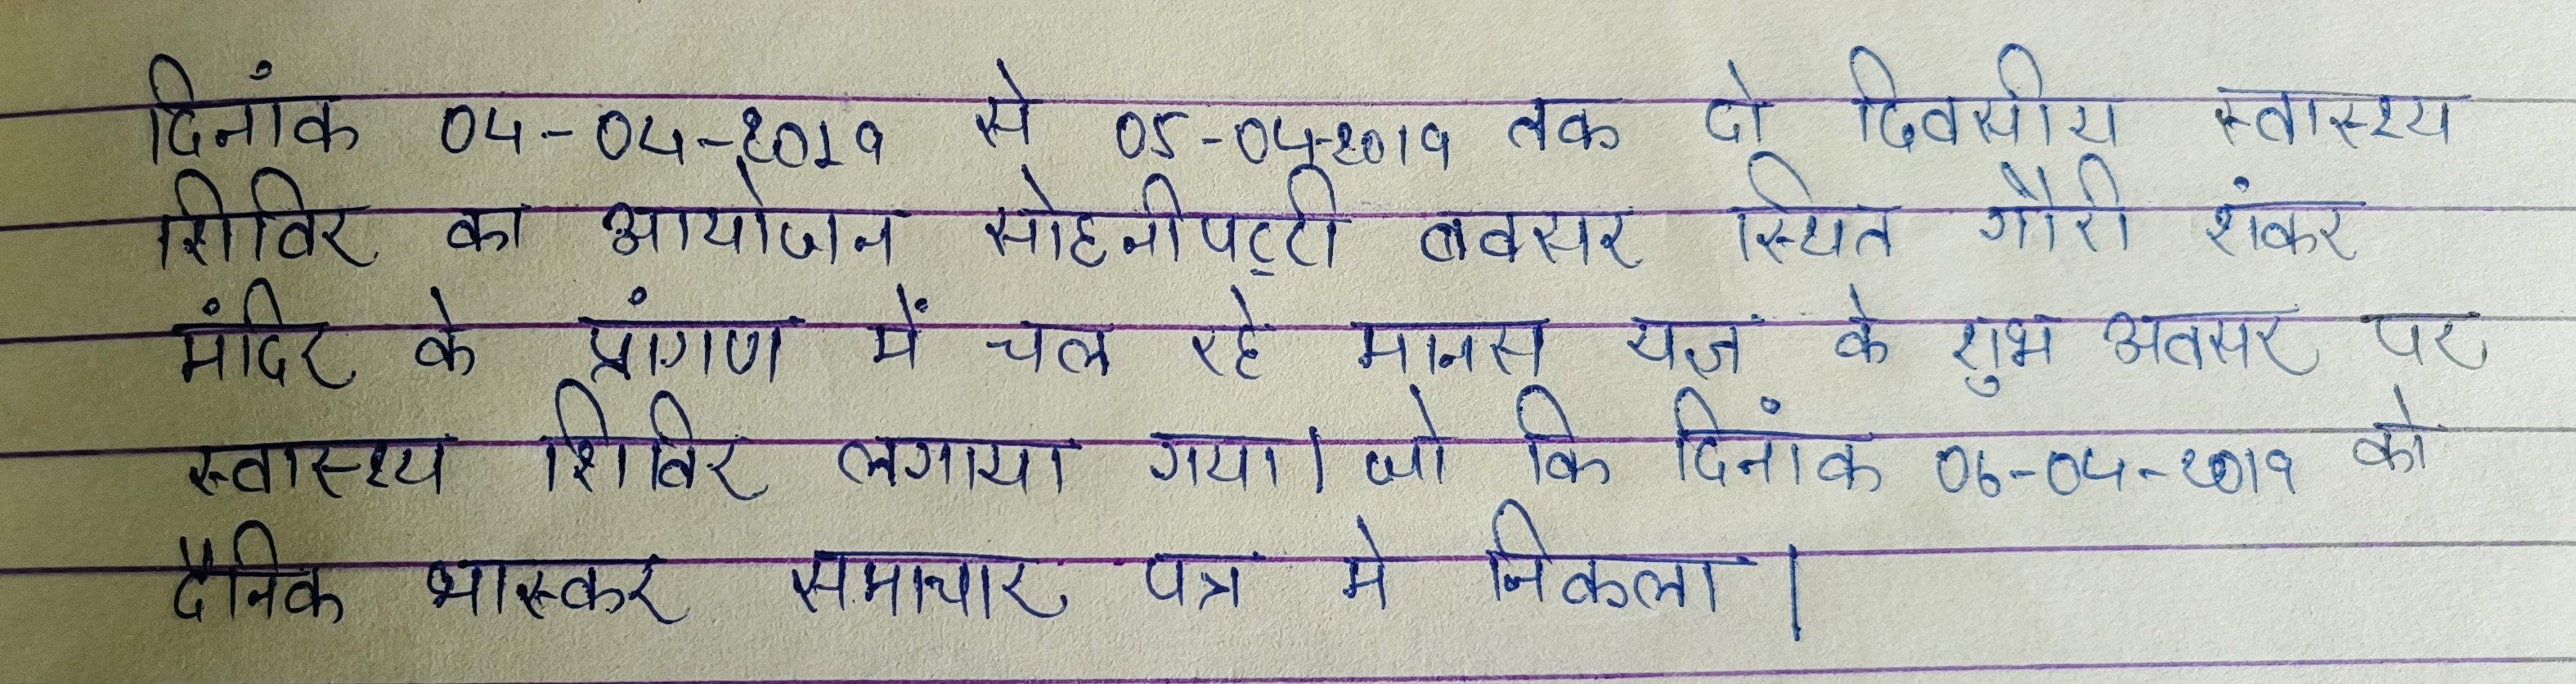 दिनांक 04-04-2019 से 05-04-2019 तक दो दिवसीय स्वास्थ्य
शिविर का आयोजन सोहनीपट्टी बक्सर स्थित गौरी शंकर
मंदिर के प्रांगण में चल रहे मानस यज्ञ के शुभ अवसर पर
स्वास्थ्य शिविर लगाया गया। जो कि दिनांक 06-04-2019 को
दैनिक भास्कर समाचार पत्र मे निकला।